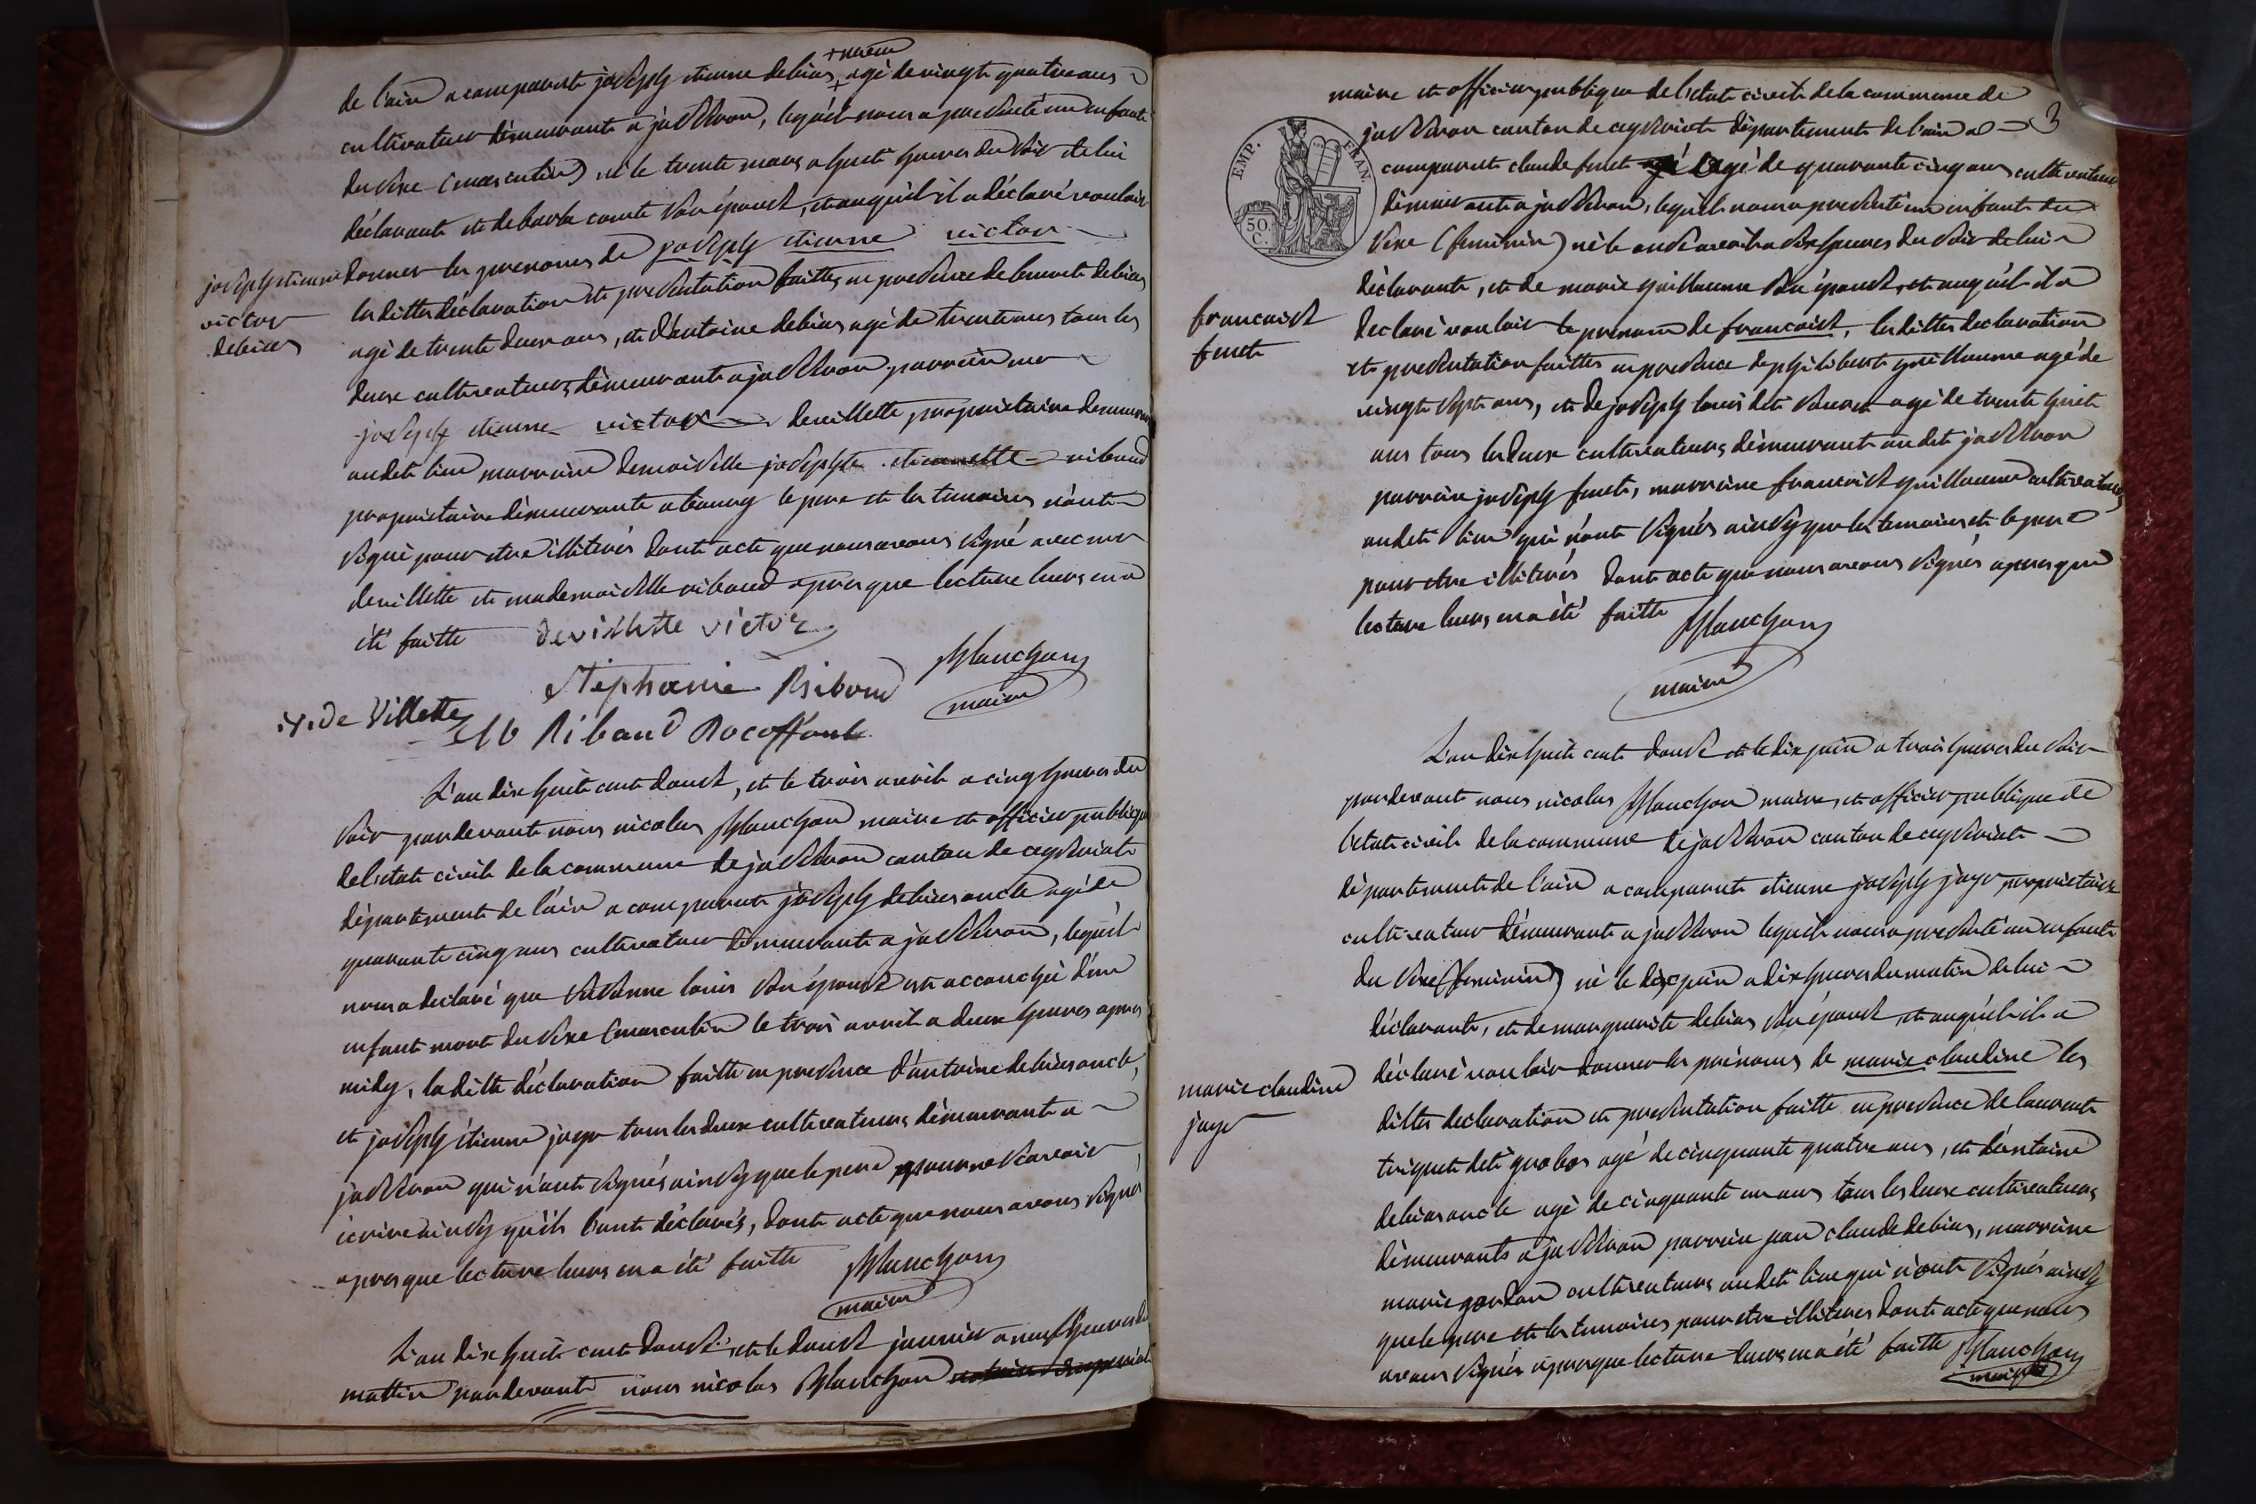 + neveu
de l'ain a comparut joseph etienne debias + agé de vingt quatre ans
cultivateur démeurant a jasseron, lequél nous a presenté un enfant
du sexe (masculin) né le trente mars a huit heures du soir de lui
déclarant et de   comte son épouse, et auquél il a déclaré vouloir
joseph etienne
victor
debias
donner les prenoms de joseph etienne victor
les dittes déclaration et presentation faittes en presence de benoit debias
agé de trente deux ans, et d'antoine debias agé de trente ans tous les
deux cultivateurs démeurant a jasseron, parrein mr
joseph etienne victor devillette proprietaire demeurant
audit lieu marraine demoiselle josephte etiennette ribaud
proprietaire démeurante a bourg le pere et les temoins n'ont
signé pour etre illiterés dont acte que nous avons signé avec mr
devillette et mademoiselle ribaud apres que lecture leurs en a
été faitte devillette victor
Stéphanie Riboud Blanchon
maire
de Villette
Ribaud Rocoffort
L'an dix huit cent douse, et le trois avril a cinq heures du
soir pardevant nous nicolas Blanchon maire et officier publique
de l'etat civil de la commune de jasseron canton de ceyseriat
département de l'ain a comparut joseph debias oncle agé de
quarante cinq ans cultivateur démeurant a jasseron, lequél
nous a déclaré que susanne louis son épouse est accouchée d'un
enfant mort du sexe (masculin) le trois avril a deux heures apres
midy, la ditte déclaration faitte en presence d'antoine debias oncle,
et joseph étienne jayr tous les deux cultivateurs démeurant a
jasseron qui n'ont signés ainsy que le pere pour ne scavoir
écrire ainsy qu'ils l'ont déclarés, dont acte que nous avons signé
apres que lecture leurs en a été faitte Blanchon
maire
L'an dix huit cent douse, et le douse janvier a neuf heures du
mattin pardevant nous nicolas Blanchon
maire et officier publique de l'etat civil de la commune de
3
EMP. FRAN.
50.
C.
jasseron canton de ceyseriat département de l'ain a
comparut claude furet agé de quarante cinq ans cultivateur
démeurant a jasseron, lequél nous a presenté un enfant du
sexe (feminin) né le onse avril a six heures du soir de lui
déclarant, et de marie guillaume son épouse, et auquél il a
francoise
furet
declaré vouloir le prenom de francoise, les dittes declaration
et presentation faittes en presence de philibert guillaume agé de
vingt sept ans, et de joseph louis dit   agé de trente huit
ans tous les deux cultivateurs démeurant audit jasseron
parrein joseph furet, marreine francoise guillaume cultivateurs
audit lieu qui n'ont signés ainsy que les temoins et le pere
pour etre illiterés dont acte que nous avons signés apres que
lecture leurs en a été faitte Blanchon
maire
L'an dix huit cent douse et le dix juin a trois heures du soir
pardevant nous nicolas Blanchon maire, et officier publique de
l'etat civil de la commune de jasseron canton de ceyseriat
département de l'ain a comparut etienne joseph jayr proprietaire
cultivateur démeurant a jasseron lequél nous a presenté un enfant
du sexe (feminin) né le dix juin a dix heures du matin de lui
déclarant, et de marguerite debias son épouse, et auquél il a
marie claudine
jayr
déclaré vouloir donner les prénoms de marie claudine les
dittes declaration et presentation faitte en presence de laurent
triquet dit   agé de cinquante quatre ans, et d'antoine
debias oncle agé de cinquante un ans tous les deux cultivateurs
démeurants a jasseron parrein jean claude debias, marreine
marie   cultivateurs audit lieu qui n'ont signés ainsy
que le pere et les temoins pour etre illiterés dont acte que nous
avons signés apres que lecture leurs en a été faitte Blanchon
maire